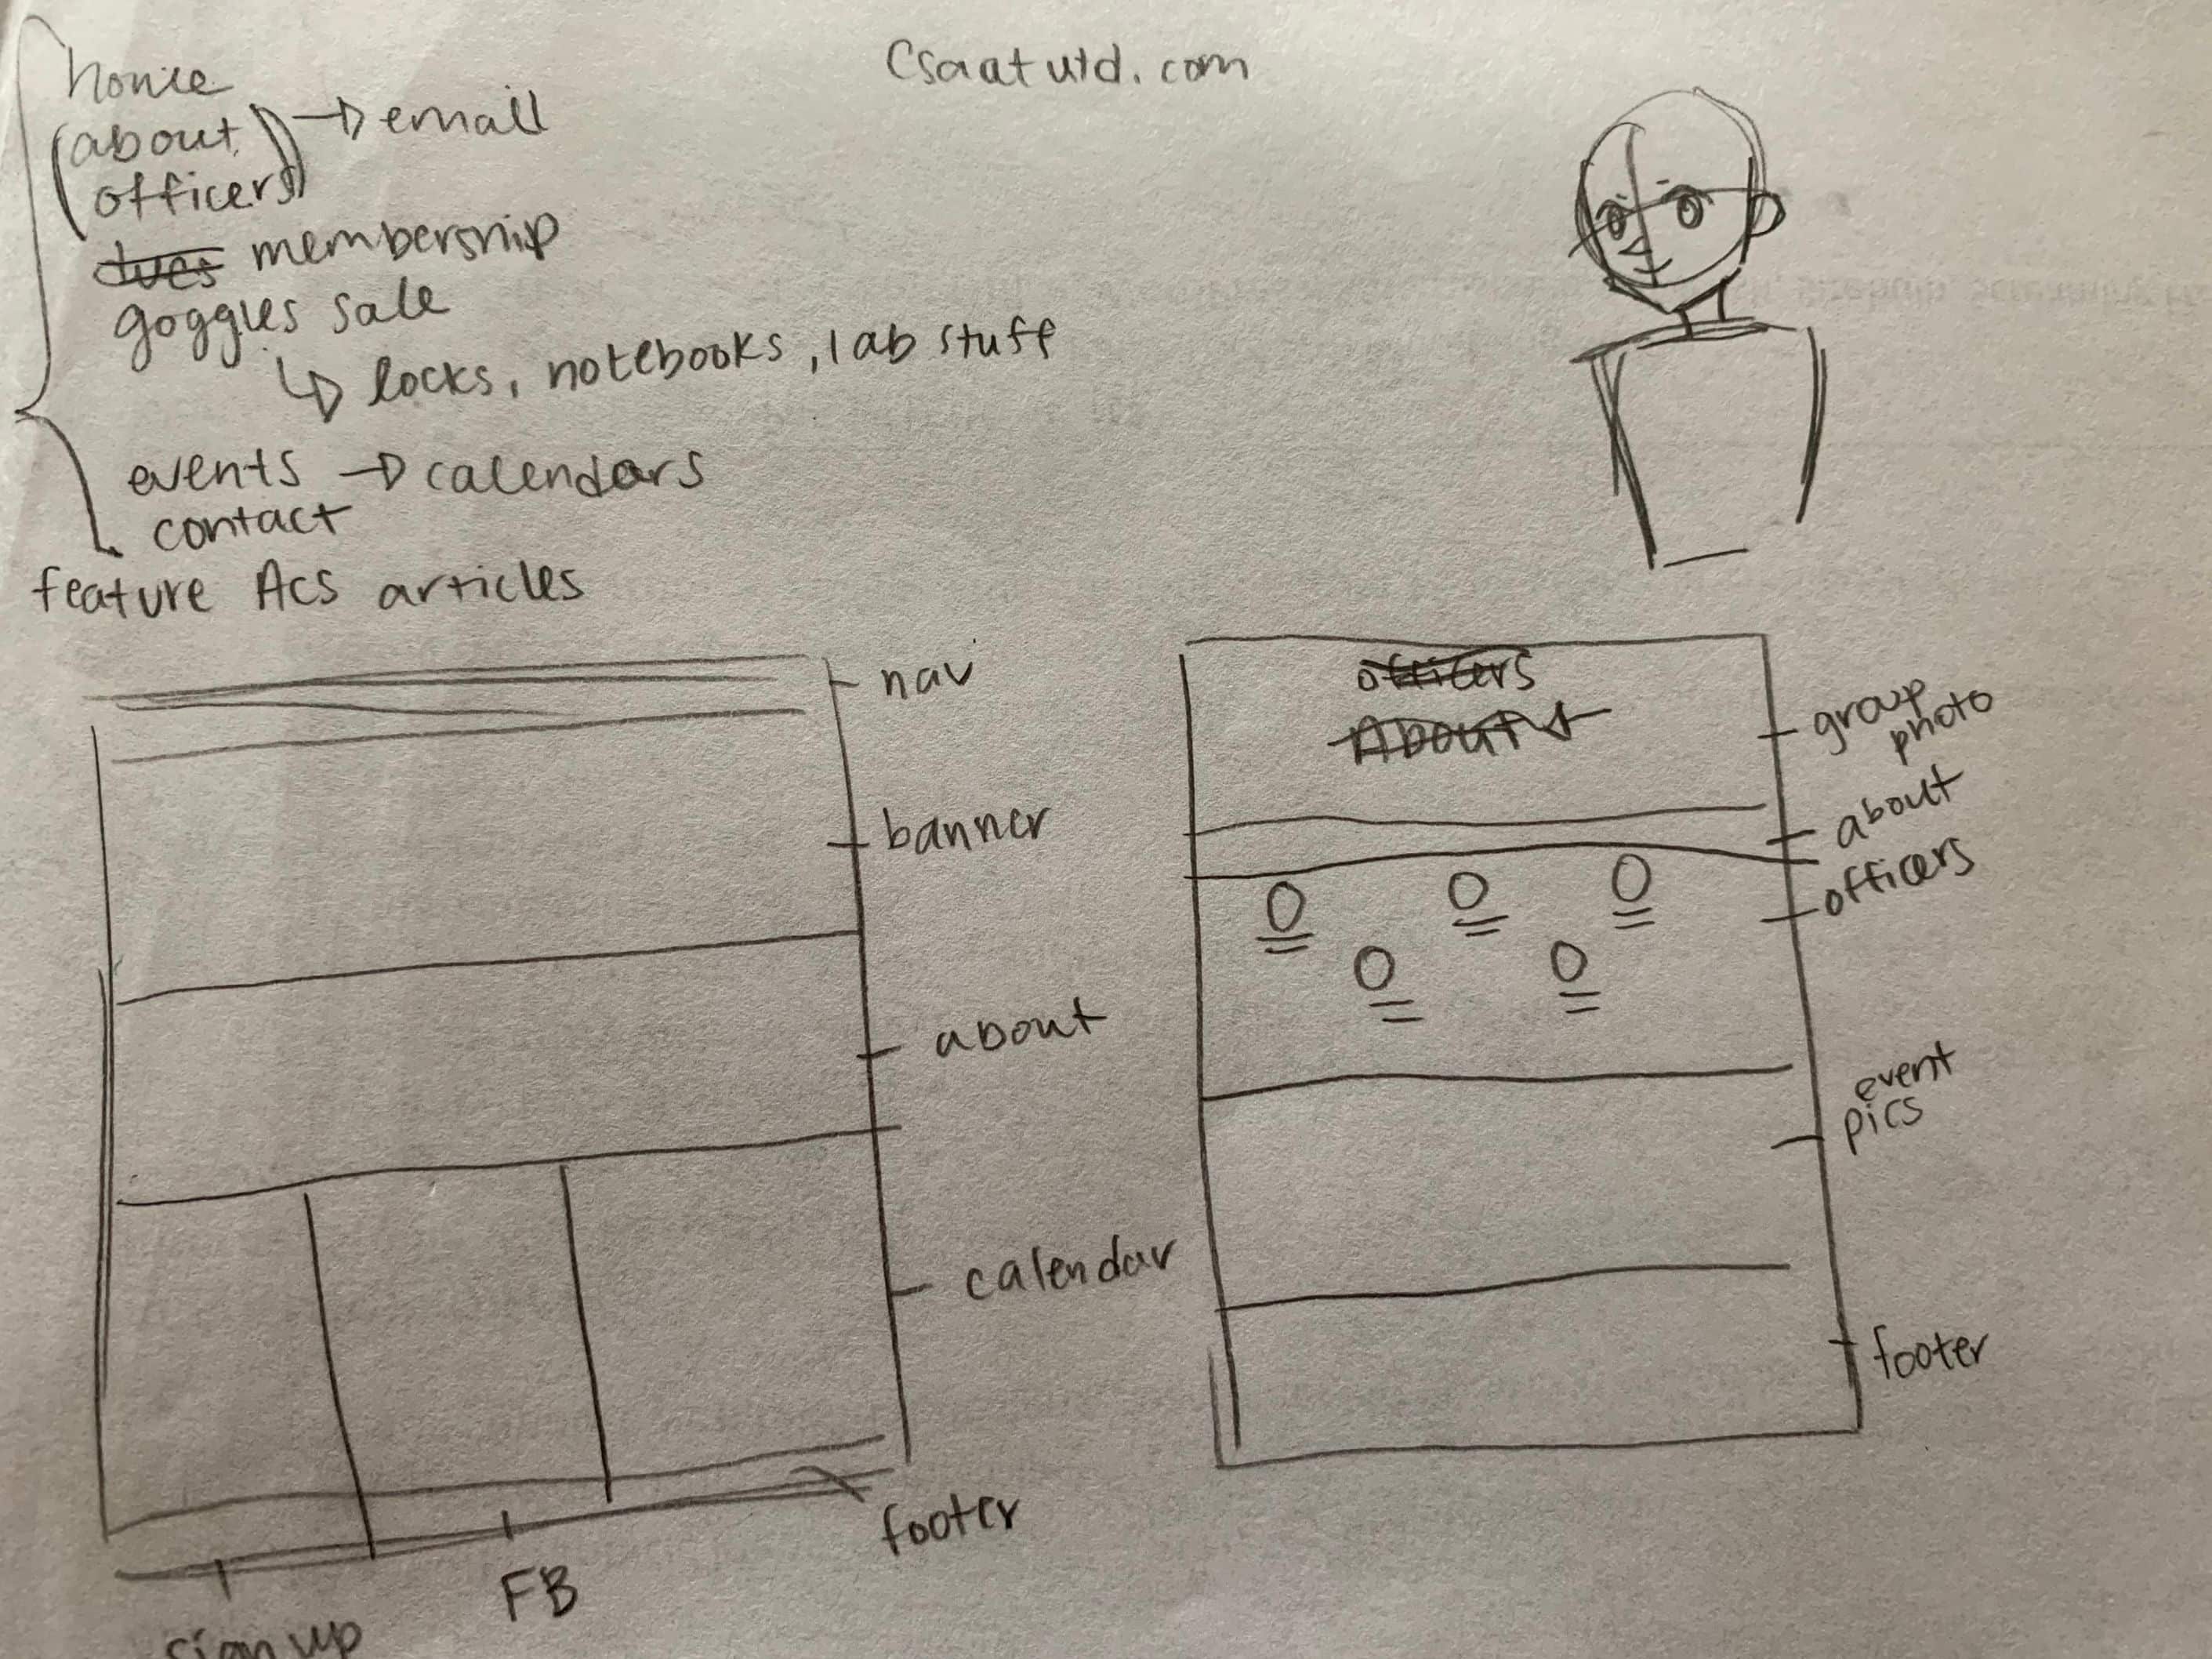 csaatutd.com
home
(about
officers) → email
dues membership
goggles sale
↳ locks, notebooks, lab stuff
events → calendars
contact
feature ACS articles
nav
banner
about
calendar
footer
FB
sign up
officers
About
group
photo
about
officers
event
pics
footer